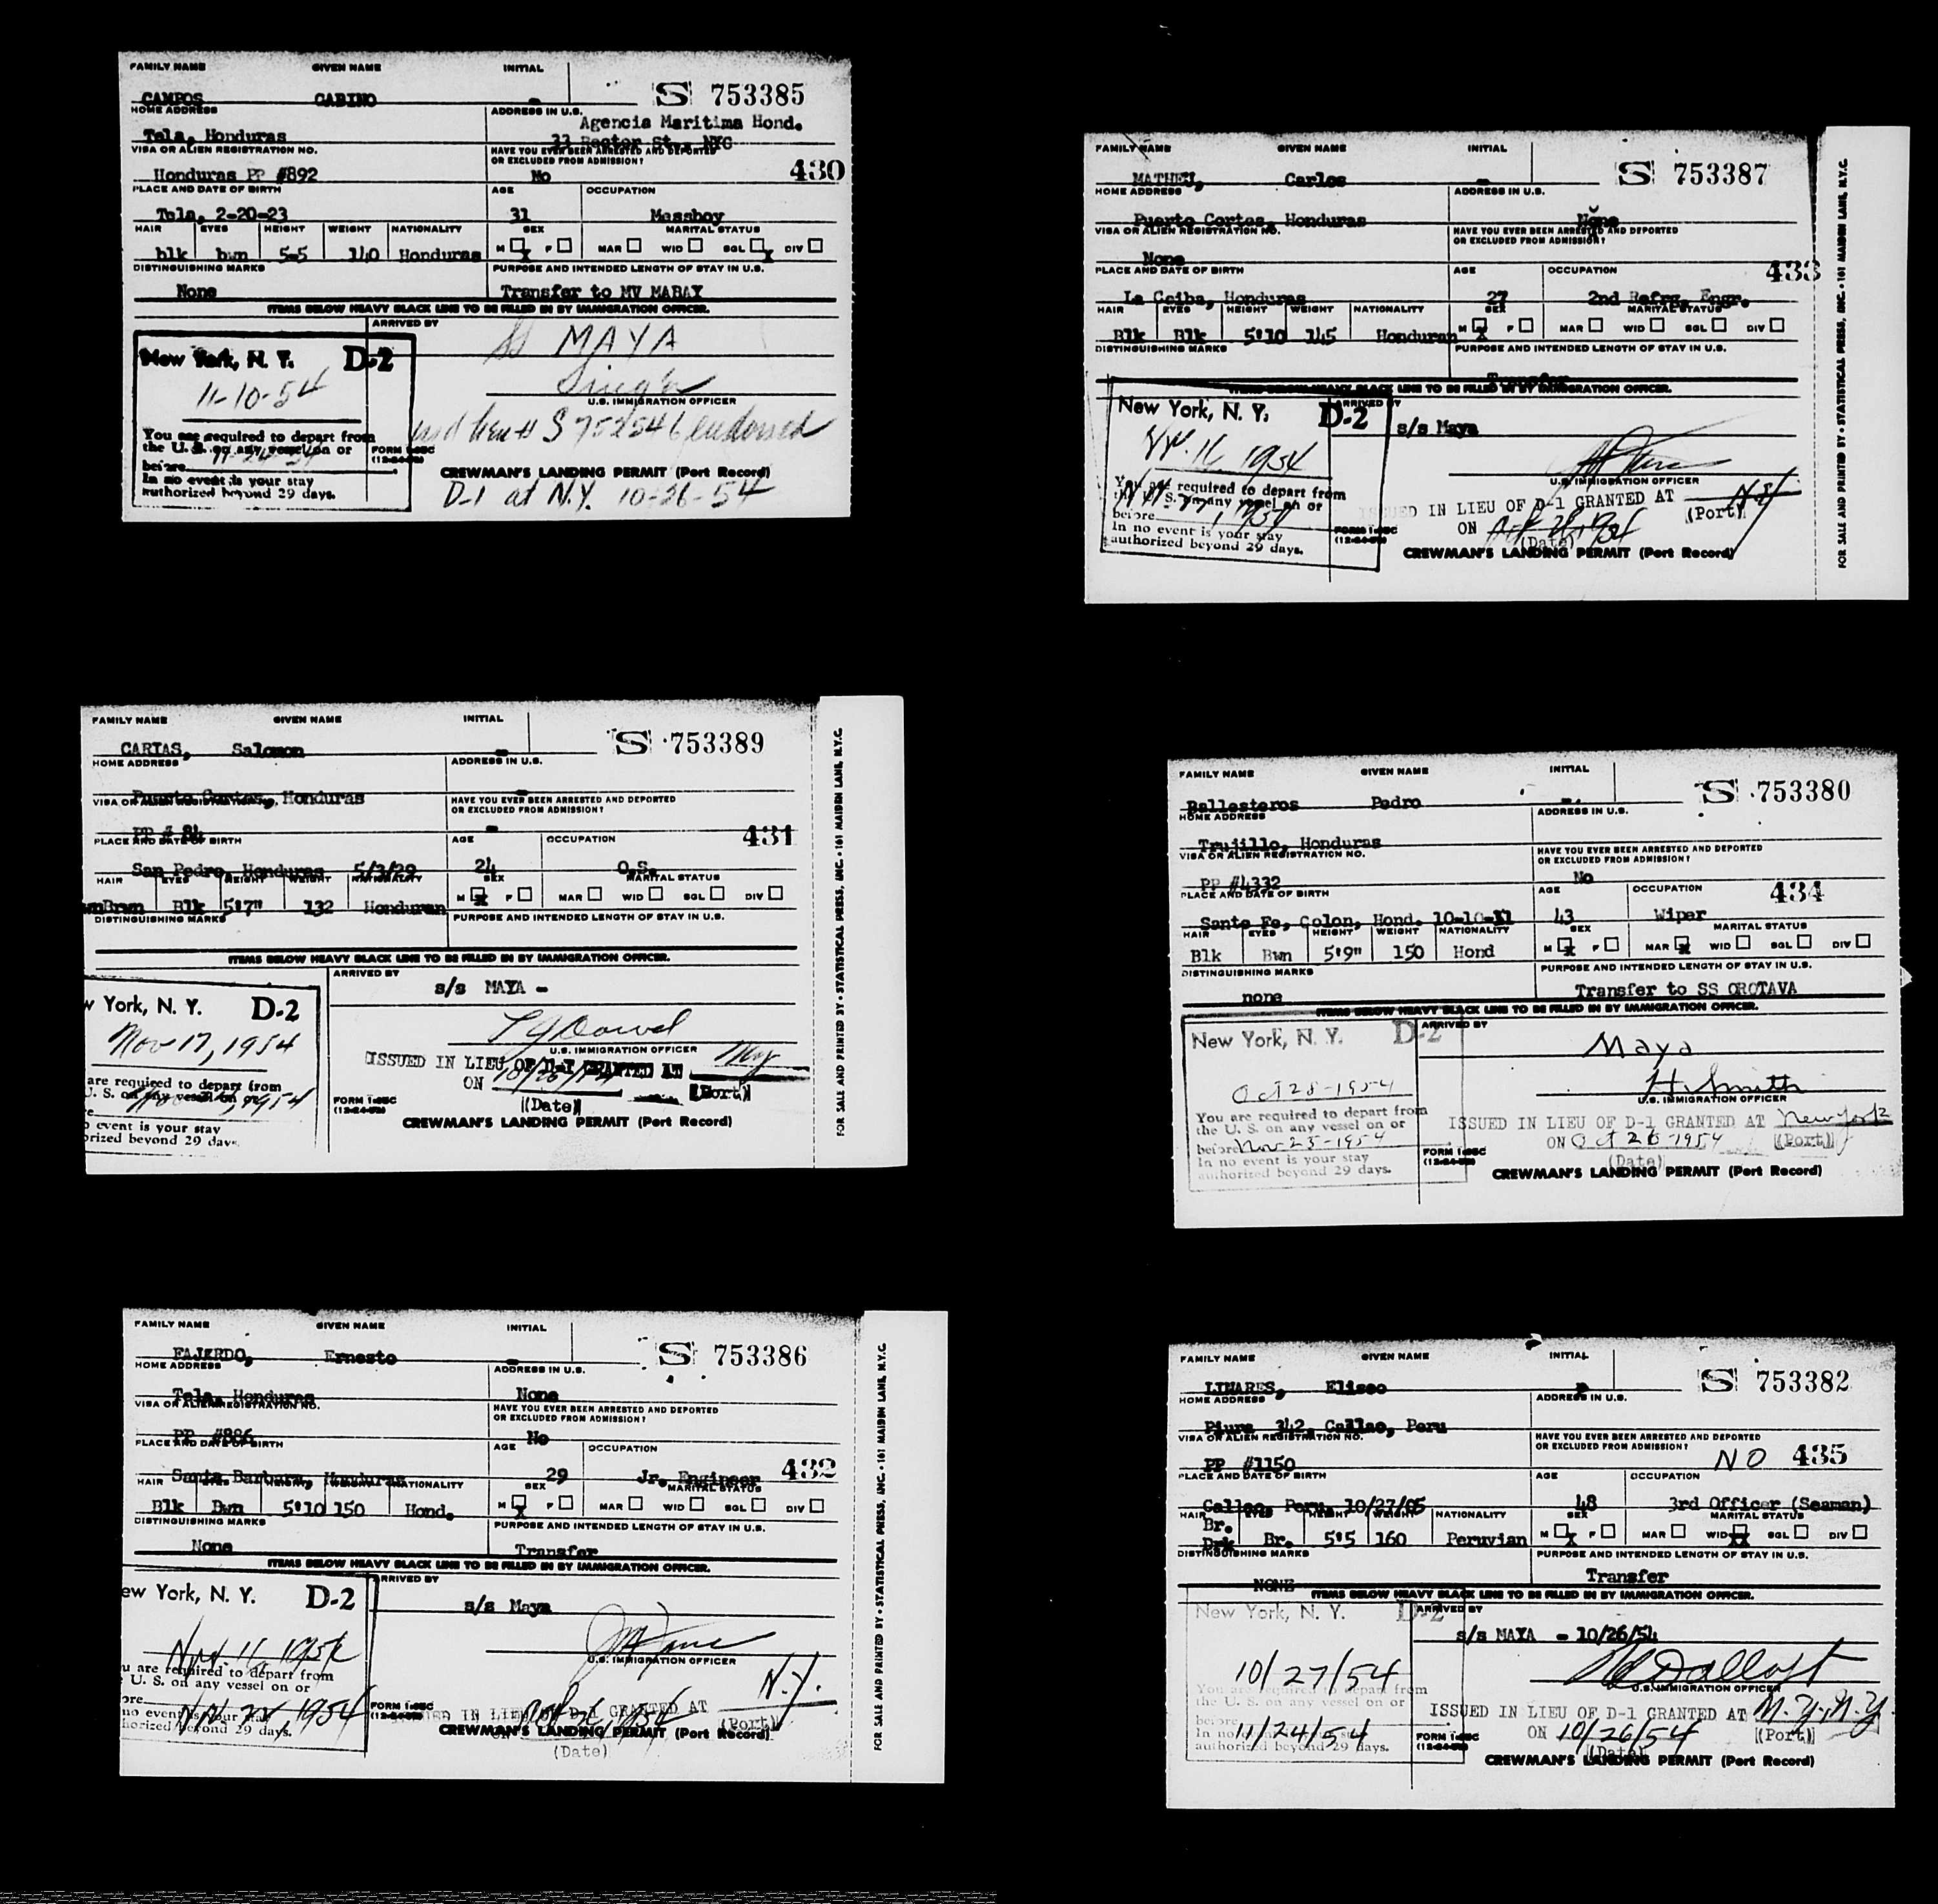 FAMILY NAME GIVEN NAME INITIAL
CAMPOS GABINO - S 753385
HOME ADDRESS ADDRESS IN U.S.
Agencia Maritima Hond.
Tela, Honduras 33 Rector St., NYC
VISA OR ALIEN REGISTRATION NO. HAVE YOU EVER BEEN ARRESTED AND DEPORTED
OR EXCLUDED FROM ADMISSION?
Honduras PP #892 No 430
PLACE AND DATE OF BIRTH AGE OCCUPATION
Tela, 2-20-23 31 Messboy
HAIR EYES HEIGHT WEIGHT NATIONALITY SEX MARITAL STATUS
M X F MAR WID SGL X DIV
blk bwn 5-5 140 Honduras
DISTINGUISHING MARKS PURPOSE AND INTENDED LENGTH OF STAY IN U.S.
None Transfer to MV MABAY
ITEMS BELOW HEAVY BLACK LINE TO BE FILLED IN BY IMMIGRATION OFFICER.
ARRIVED BY
SS MAYA
New York, N. Y. D-2
11-10-54
U.S. IMMIGRATION OFFICER
S 752546 endorsed
You are required to depart from
the U. S. on any vessel on or
before 11-24-54
In no event is your stay
authorized beyond 29 days.
CREWMAN'S LANDING PERMIT (Port Record)
D-1 at N.Y. 10-26-54
FAMILY NAME GIVEN NAME INITIAL
MATHEU, Carlos - S 753387
HOME ADDRESS ADDRESS IN U.S.
Puerto Cortes, Honduras None
VISA OR ALIEN REGISTRATION NO. HAVE YOU EVER BEEN ARRESTED AND DEPORTED
OR EXCLUDED FROM ADMISSION?
None 433
PLACE AND DATE OF BIRTH AGE OCCUPATION
La Ceiba, Honduras 27 2nd Refrg. Engr.
HAIR EYES HEIGHT WEIGHT NATIONALITY SEX MARITAL STATUS
M X F MAR WID SGL DIV
Blk Blk 5'10 145 Honduran
DISTINGUISHING MARKS PURPOSE AND INTENDED LENGTH OF STAY IN U.S.
Transfer
ITEMS BELOW HEAVY BLACK LINE TO BE FILLED IN BY IMMIGRATION OFFICER.
New York, N. Y. D-2 ARRIVED BY
s/s Maya
U.S. IMMIGRATION OFFICER
You are required to depart from
the U. S. on any vessel on or
before
In no event is your stay
authorized beyond 29 days.
ISSUED IN LIEU OF D-1 GRANTED AT N.Y.
(Port)
ON Oct 26, 1954
(Date)
CREWMAN'S LANDING PERMIT (Port Record)
FOR SALE AND PRINTED BY • STATISTICAL PRESS, INC. • 161 MAIDEN LANE, N.Y.C.
FAMILY NAME GIVEN NAME INITIAL
CARIAS, Salomon - S 753389
HOME ADDRESS ADDRESS IN U.S.
Puerto Cortes, Honduras -
VISA OR ALIEN REGISTRATION NO. HAVE YOU EVER BEEN ARRESTED AND DEPORTED
OR EXCLUDED FROM ADMISSION?
PP # 84 - 431
PLACE AND DATE OF BIRTH AGE OCCUPATION
San Pedro, Honduras 5/3/29 24 O.S.
HAIR EYES HEIGHT WEIGHT NATIONALITY SEX MARITAL STATUS
M X F MAR WID SGL DIV
Brwn Blk 5'7" 132 Honduran
DISTINGUISHING MARKS PURPOSE AND INTENDED LENGTH OF STAY IN U.S.
ITEMS BELOW HEAVY BLACK LINE TO BE FILLED IN BY IMMIGRATION OFFICER.
ARRIVED BY
s/s MAYA -
w York, N. Y. D-2
Nov 17, 1954
U.S. IMMIGRATION OFFICER
are required to depart from
U. S. on any vessel on or
event is your stay
orized beyond 29 days.
ISSUED IN LIEU OF D-1 GRANTED AT
ON 10/26/54
(Date) (Port)
CREWMAN'S LANDING PERMIT (Port Record)
FOR SALE AND PRINTED BY • STATISTICAL PRESS, INC. • 161 MAIDEN LANE, N.Y.C.
FAMILY NAME GIVEN NAME INITIAL
Ballesteros Pedro - S 753380
HOME ADDRESS ADDRESS IN U.S.
Trujillo, Honduras
VISA OR ALIEN REGISTRATION NO. HAVE YOU EVER BEEN ARRESTED AND DEPORTED
OR EXCLUDED FROM ADMISSION?
PP #4332 No
PLACE AND DATE OF BIRTH AGE OCCUPATION 434
Sante Fe, Colon, Hond. 10-10-11 43 Wiper
HAIR EYES HEIGHT WEIGHT NATIONALITY SEX MARITAL STATUS
M X F MAR X WID SGL DIV
Blk Bwn 5'9" 150 Hond
DISTINGUISHING MARKS PURPOSE AND INTENDED LENGTH OF STAY IN U.S.
none Transfer to SS OROTAVA
ITEMS BELOW HEAVY BLACK LINE TO BE FILLED IN BY IMMIGRATION OFFICER.
New York, N. Y. D-2 ARRIVED BY
Maya
Oct 28-1954 H. Smith
U.S. IMMIGRATION OFFICER
You are required to depart from
the U. S. on any vessel on or
before Nov 25-1954
In no event is your stay
authorized beyond 29 days.
ISSUED IN LIEU OF D-1 GRANTED AT New York
ON Oct 26-1954 (Port)
(Date)
CREWMAN'S LANDING PERMIT (Port Record)
FAMILY NAME GIVEN NAME INITIAL
FAJERDO, Ernesto - S 753386
HOME ADDRESS ADDRESS IN U.S.
Tela, Honduras None
VISA OR ALIEN REGISTRATION NO. HAVE YOU EVER BEEN ARRESTED AND DEPORTED
OR EXCLUDED FROM ADMISSION?
PP #886 No
PLACE AND DATE OF BIRTH AGE OCCUPATION
Santa Barbara, Honduras 29 Jr. Engineer 432
HAIR EYES HEIGHT WEIGHT NATIONALITY SEX MARITAL STATUS
M X F MAR WID SGL DIV
Blk Bwn 5'10 150 Hond.
DISTINGUISHING MARKS PURPOSE AND INTENDED LENGTH OF STAY IN U.S.
None Transfer
ITEMS BELOW HEAVY BLACK LINE TO BE FILLED IN BY IMMIGRATION OFFICER.
ew York, N. Y. D-2 ARRIVED BY
s/s Maya
U.S. IMMIGRATION OFFICER
u are required to depart from
U. S. on any vessel on or
ore
no event is your stay
horized beyond 29 days.
ISSUED IN LIEU OF D-1 GRANTED AT N.Y.
CREWMAN'S LANDING PERMIT (Port Record) (Port)
(Date)
FOR SALE AND PRINTED BY • STATISTICAL PRESS, INC. • 161 MAIDEN LANE, N.Y.C.
FAMILY NAME GIVEN NAME INITIAL
LINARES, Eliseo P S 753382
HOME ADDRESS ADDRESS IN U.S.
Piura 342, Callao, Peru
VISA OR ALIEN REGISTRATION NO. HAVE YOU EVER BEEN ARRESTED AND DEPORTED
OR EXCLUDED FROM ADMISSION?
PP #1150 NO 435
PLACE AND DATE OF BIRTH AGE OCCUPATION
Callao, Peru, 10/27/05 48 3rd Officer (Seaman)
HAIR EYES HEIGHT WEIGHT NATIONALITY SEX MARITAL STATUS
M X F MAR WID XX SGL DIV
Br. Drk Br. 5'5 160 Peruvian
DISTINGUISHING MARKS PURPOSE AND INTENDED LENGTH OF STAY IN U.S.
NONE Transfer
ITEMS BELOW HEAVY BLACK LINE TO BE FILLED IN BY IMMIGRATION OFFICER.
New York, N. Y. D-2 ARRIVED BY
s/s MAYA - 10/26/54
10/27/54
U.S. IMMIGRATION OFFICER
You are required to depart from
the U. S. on any vessel on or
before 11/24/54
In no event is your stay
authorized beyond 29 days.
ISSUED IN LIEU OF D-1 GRANTED AT N.Y. N.Y.
ON 10/26/54 (Port)
(Date)
CREWMAN'S LANDING PERMIT (Port Record)